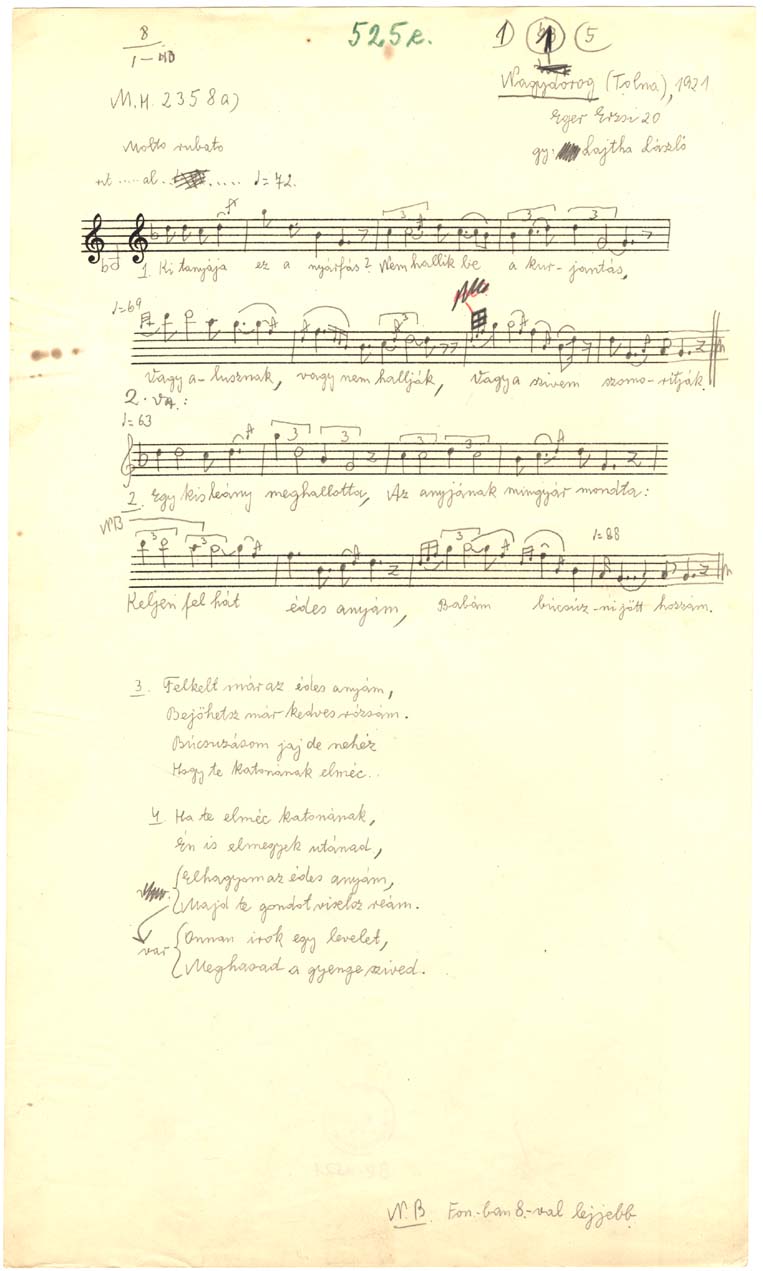 8
1 – 10
525e.
1) 5
Nagydorog (Tolna), 1921
M.H. 2358a)
Eger Erzsi 20
gy: Lajtha László
Molto rubato
♩=72.
3 3
1. Ki tanyája ez a nyárfás? Nem hallik be a kur-jantás,
♩=69
3
Vagy a-lusznak, vagy nem hallják, Vagy a szivem szomo-rítják.
2. va.:
♩=63
3 3 3 3
2. Egy kisleány meghallotta, Az anyjának mingyár mondta:
NB
3 3 3 ♩=88
Keljen fel hát édes anyám, Babám búcsúz-ni jött hozzám.
3. Felkelt már az édes anyám,
Bejöhetsz már kedves rózsám.
Búcsuzásom jaj de nehéz
Hogy te katonának elméc.
4. Ha te elméc katonának,
Én is elmegyek utánad,
Elhagyom az édes anyám,
Majd te gondot viselsz reám.
var Onnan irok egy levelet,
Meghasad a gyenge szived.
N.B. Fon.-ban 8.-val lejjebb